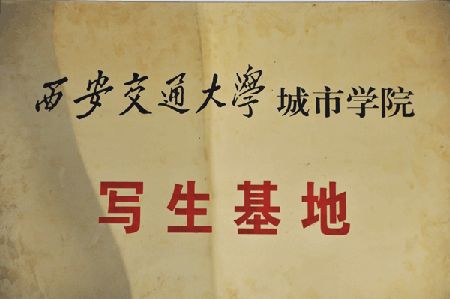 西安交通大學城市学院
写生基地